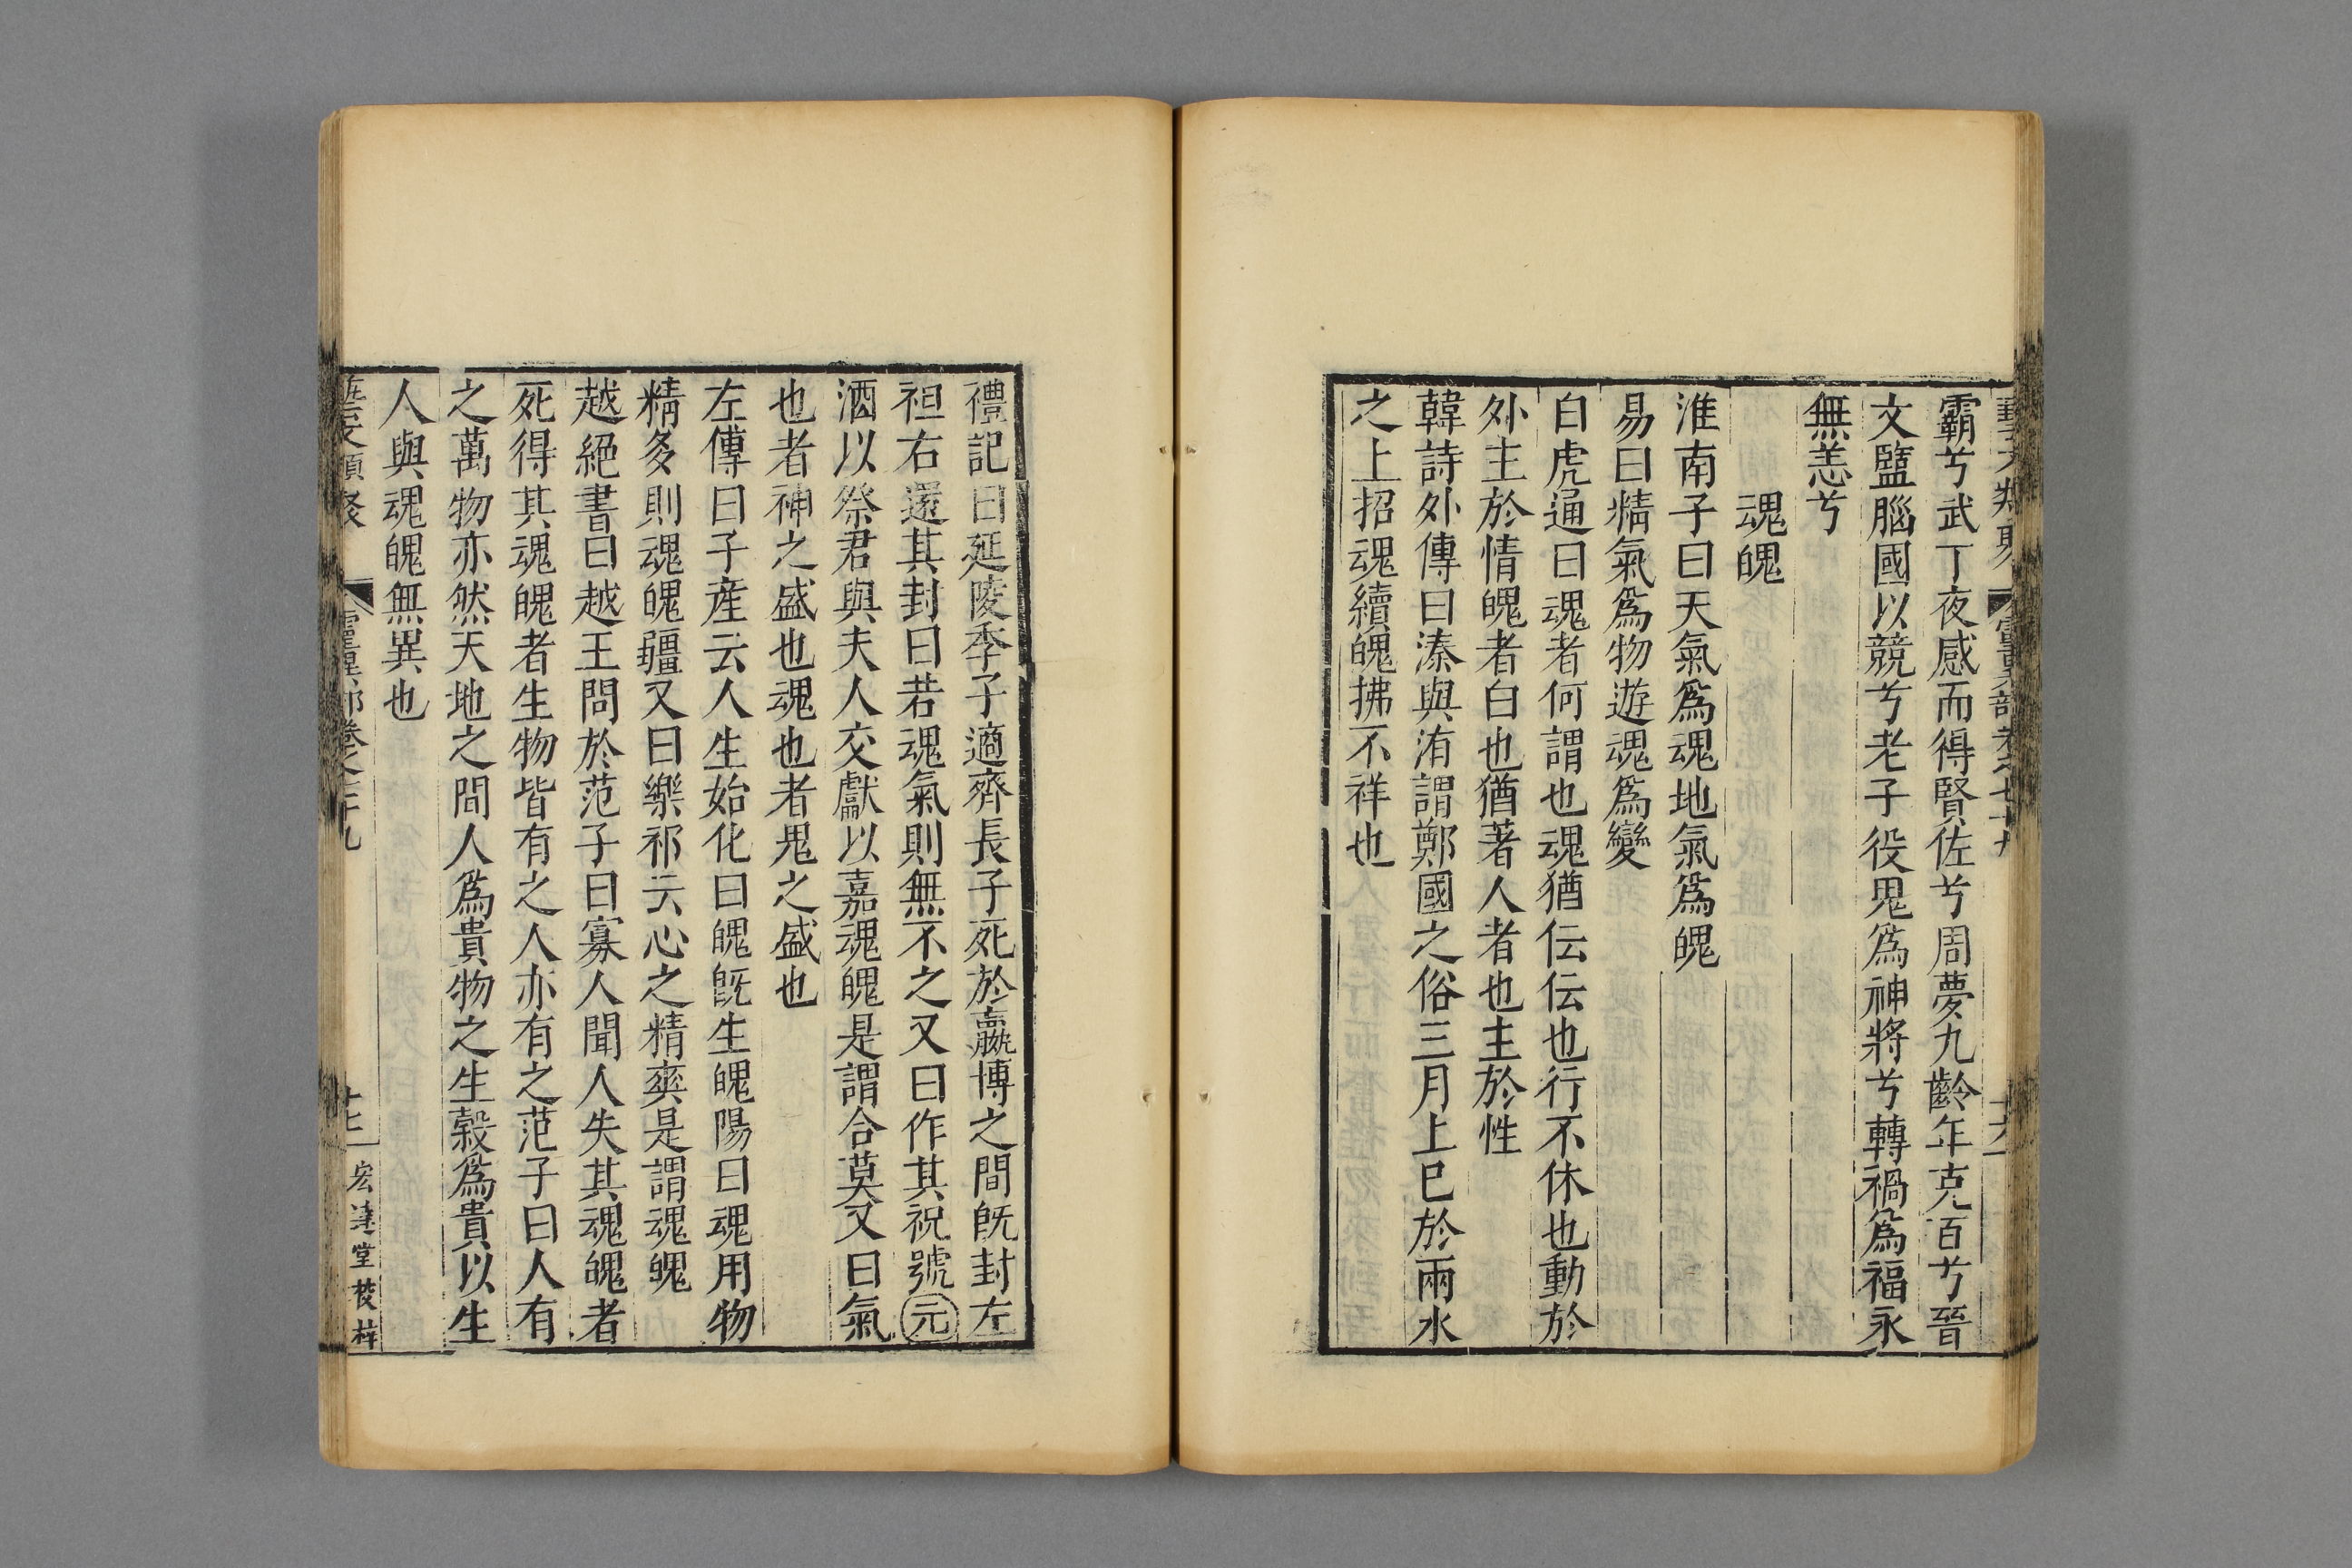 霸兮武丁夜感而得賢佐兮周夢九齡年克百兮晉
文盬腦國以競兮老子役鬼爲神將兮轉禍爲福永
無恙兮
魂魄
淮南子曰天氣爲魂地氣爲魄
易曰精氣爲物遊魂爲變
白虎通曰魂者何謂也魂猶伝伝也行不休也動於
外主於情魄者白也猶著人者也主於性
韓詩外傳曰溱與洧謂鄭國之俗三月上巳於兩水
之上招魂續魄拂不祥也
禮記曰延陵季子適齊長子死於嬴博之間旣封左
袒右還其封曰若魂氣則無不之又曰作其祝號元
酒以祭君與夫人交獻以嘉魂魄是謂合莫又曰氣
也者神之盛也魂也者鬼之盛也
左傳曰子產云人生始化曰魄旣生魄陽曰魂用物
精多則魂魄疆又曰樂祁云心之精爽是謂魂魄
越絕書曰越王問於范子曰寡人聞人失其魂魄者
死得其魂魄者生物皆有之人亦有之范子曰人有
之萬物亦然天地之間人爲貴物之生榖爲貴以生
人與魂魄無異也
藝文類聚 靈異部卷之七十九 十七 宏達堂校梓